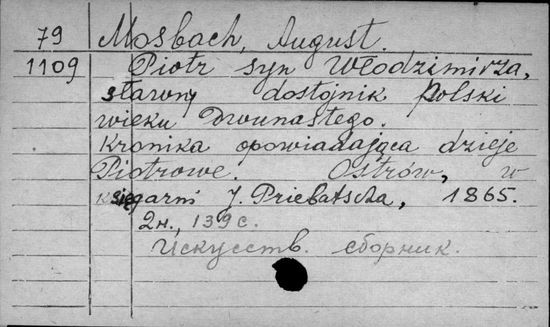 79 Mosbach, August.
1109 Piotr syn Włodzimirza,
sławny dostojnik Polski
wieku Dwunastego.
Kronika opowiadająca dzieje
Piotrowe. Ostrów, w
księgarni J. Priebatscha, 1865.
2н., 139 с.
Искусств. сборник.